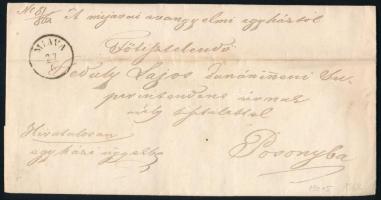 A mijavai evangyelmi egyháztól
MIAVA
27
Főtisztelendő
Geduly Lajos dunáninneni Su-
perintendens úrnak
mély tisztelettel
Hivatalosan
egyházi ügyekbe
Posonyba